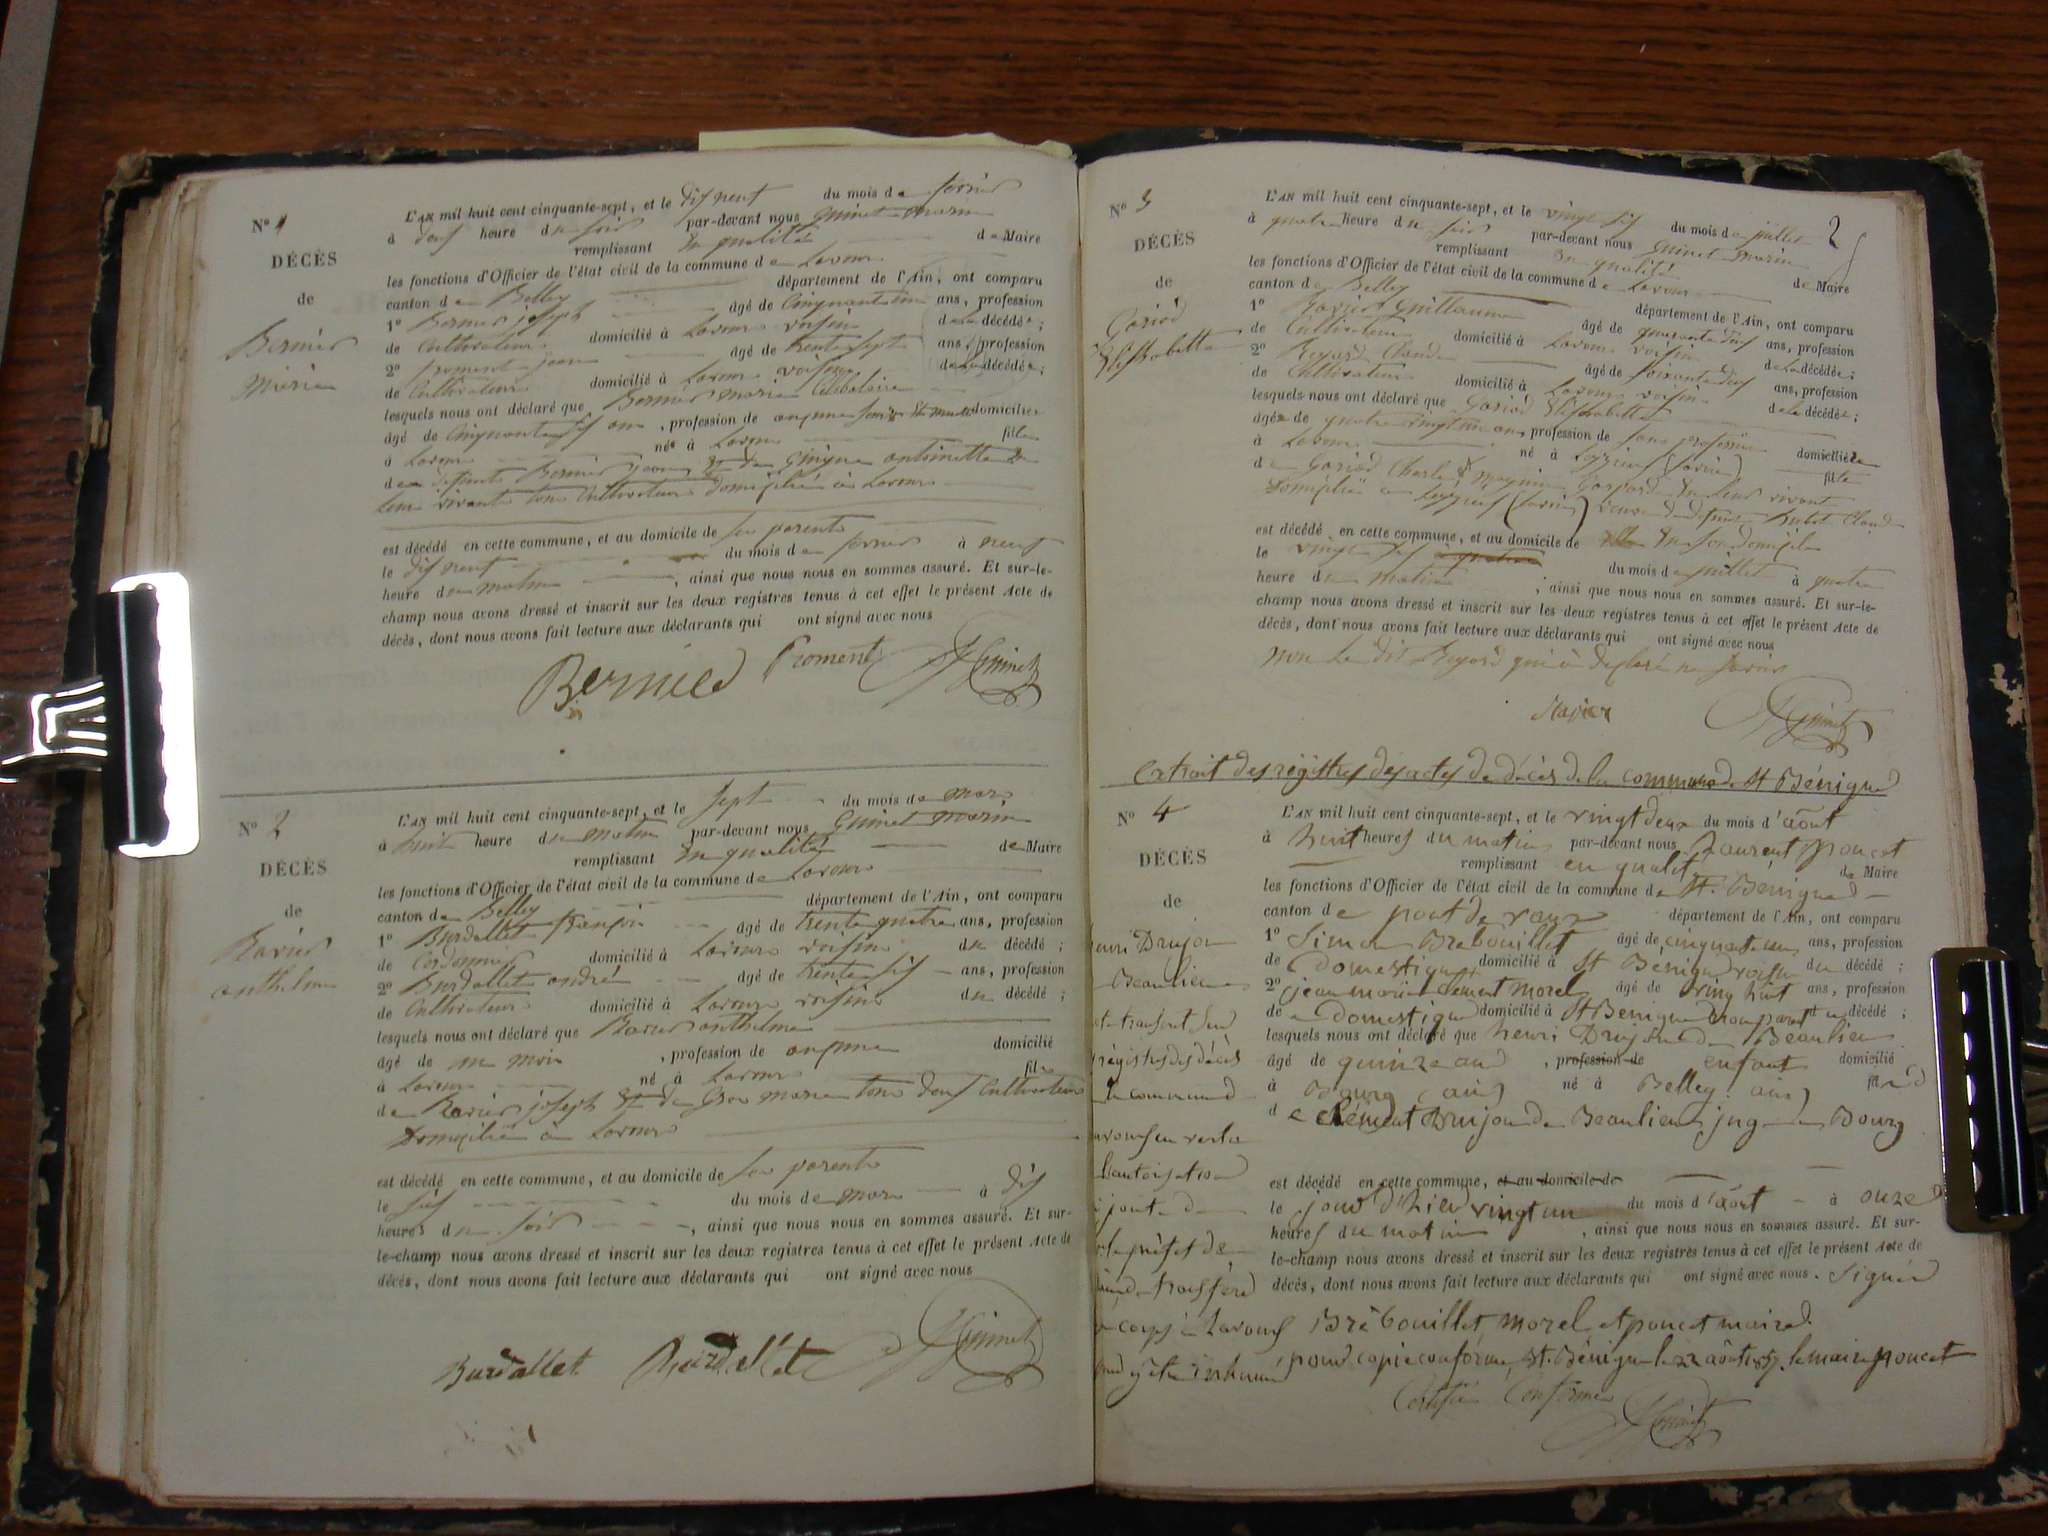 N° 1
DÉCÈS
de
Bernier
Marie
L'AN mil huit cent cinquante-sept, et le dix neuf du mois de fevrier
à deux heure du soir par-devant nous Guinet Marin
remplissant en qualité de Maire
les fonctions d'Officier de l'état civil de la commune de Lavour
canton de Belley département de l'Ain, ont comparu
1° Bernier joseph âgé de Cinquante ans, profession
de Cultivateur domicilié à Lavour voisin de la décédée ;
2° froment jean âgé de trente sept ans, profession
de Cultivateur domicilié à Lavour voisin de la décédée ;
lesquels nous ont déclaré que Bernier marie Célibataire
âgé de Cinquante six ans, profession de aucune domiciliée
à Lavour née à Lavour fille
de defunts Bernier jean et de antoinette
leur vivant tous Cultivateurs domicilié à Lavour
est décédé en cette commune, et au domicile de ses parents
le dix neuf du mois de fevrier à neuf
heure du matin, ainsi que nous nous en sommes assuré. Et sur-le-
champ nous avons dressé et inscrit sur les deux registres tenus à cet effet le présent Acte de
décès, dont nous avons fait lecture aux déclarants qui ont signé avec nous
Bernier froment Guinet
N° 2
DÉCÈS
de
Ravier
anthelme
L'AN mil huit cent cinquante-sept, et le sept du mois de mars
à huit heure du matin par-devant nous Guinet Marin
remplissant en qualité de Maire
les fonctions d'Officier de l'état civil de la commune de Lavour
canton de Belley département de l'Ain, ont comparu
1° Burdallet françois âgé de trente quatre ans, profession
de Cordonnier domicilié à Lavour voisin du décédé ;
2° Burdallet andré âgé de trente six ans, profession
de Cultivateur domicilié à Lavour voisin du décédé ;
lesquels nous ont déclaré que Ravier anthelme
âgé de un mois, profession de aucune domicilié
à Lavour né à Lavour fils
de Ravier joseph et de marie tous deux Cultivateurs
Domicilié à Lavour
est décédé en cette commune, et au domicile de ses parents
le six du mois de mars à dix
heures du soir, ainsi que nous nous en sommes assuré. Et sur-
le-champ nous avons dressé et inscrit sur les deux registres tenus à cet effet le présent Acte de
décès, dont nous avons fait lecture aux déclarants qui ont signé avec nous
Burdallet Burdallet Guinet
2
N° 3
DÉCÈS
de
Gariod
Elisabette
L'AN mil huit cent cinquante-sept, et le vingt six du mois de juillet
à quatre heure du soir par-devant nous Guinet Marin
remplissant en qualité de Maire
les fonctions d'Officier de l'état civil de la commune de Lavour
canton de Belley département de l'Ain, ont comparu
1° Ravier Guillaume âgé de quarante deux ans, profession
de Cultivateur domicilié à Lavour voisin de la décédée ;
2° Reyard Claude âgé de soixante dix ans, profession
de Cultivateur domicilié à Lavour voisin de la décédée ;
lesquels nous ont déclaré que Gariod Elisabette
âgée de quatre vingt ans, profession de sans profession domiciliée
à Lavour né à fille
de Gariod Charles et Gaspard en leur vivant
Domicilié à veuve de defunt Claude
est décédé en cette commune, et au domicile de en son domicile
le vingt six du mois de juillet à quatre
heure du matin ; ainsi que nous nous en sommes assuré. Et sur-le-
champ nous avons dressé et inscrit sur les deux registres tenus à cet effet le présent Acte de
décès, dont nous avons fait lecture aux déclarants qui ont signé avec nous
non le dit Reyard qui a declaré ne savoir
Ravier Guinet
Extrait des régistres des actes de décès de la commune de St Bénigne
N° 4
DÉCÈS
de
henri Drujon
Beaulieu
L'AN mil huit cent cinquante-sept, et le vingt deux du mois d'août
à huit heures du matin par-devant nous Laurent poncet
remplissant en qualité de Maire
les fonctions d'Officier de l'état civil de la commune de St. Bénigne
canton de pont de vaux département de l'Ain, ont comparu
1° Simon Brebouillet âgé de cinquante un ans, profession
de Domestique domicilié à St Bénigne voisin du décédé ;
2° jean marie clement morel âgé de vingt huit ans, profession
de Domestique domicilié à St Bénigne non parent du décédé ;
lesquels nous ont déclaré que henri Drujon de Beaulieu
âgé de quinze ans, profession de enfant domicilié
à Bourg (ain) né à Belley (ain) fils
de clément Drujon de Beaulieu juge à Bourg
est décédé en cette commune, et au domicile de
le jour d'hier vingt un du mois d'août à onze
heures du matin, ainsi que nous nous en sommes assuré. Et sur-
le-champ nous avons dressé et inscrit sur les deux registres tenus à cet effet le présent Acte de
décès, dont nous avons fait lecture aux déclarants qui ont signé avec nous. Signé
Brebouillet, morel, et poncet maire.
pour copie conforme, St. Bénigne le 22 août 1857. le maire poncet
Certifié Conforme
Guinet
registres des décès
la commune
en vertu
l'autorisation
jointe
le préfet de
transféré
corps à Lavours
y être inhumé